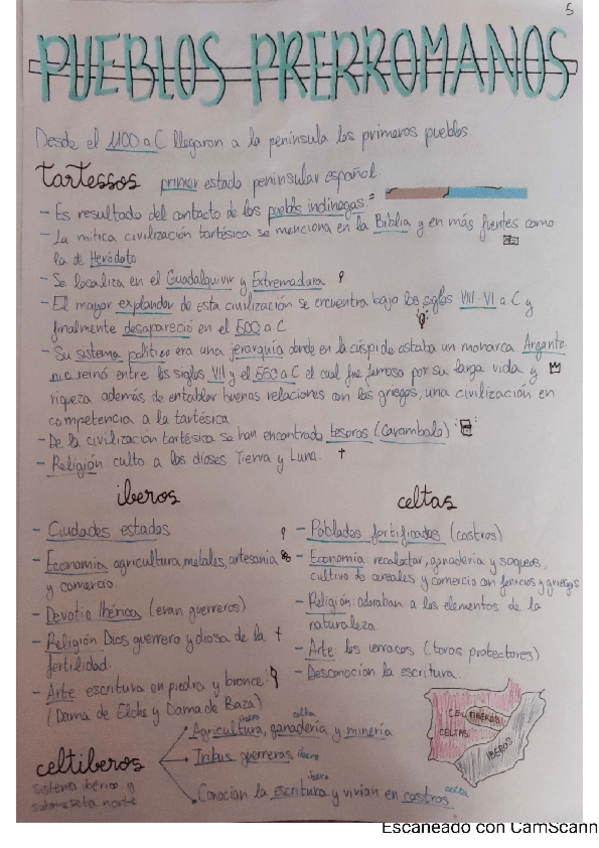 5
PUEBLOS PRERROMANOS
Desde el 1100 a C llegaron a la península los primeros pueblos.
tartessos primer estado peninsular español.
- Es resultado del contacto de los pueblos indínegas.
- La mítica civilización tartésica se menciona en la Biblia y en más fuentes como
la de Heródoto
- Se localiza en el Guadalquivir y Extremadura
- El mayor explandor de esta civilización se encuentra bajo los siglos VIII-VI a C y
finalmente desapareció en el 500 a C
- Su sistema político era una jerarquía donde en la cúspide estaba un monarca Arganto-
nio reinó entre los siglos VII y el 550 a C el cual fue famoso por su larga vida y
riqueza además de entablar buenas relaciones con los griegos, una civilización en
competencia a la tartésica
- De la civilización tartésica se han encontrado tesoros (Carambolo)
- Religión culto a los dioses Tierra y Luna.
iberos
- Ciudades estados
- Economía agricultura, metales, artesanía
y comercio.
- Devotio Ibérica (eran guerreros)
- Religión Dios guerrero y diosa de la
fertilidad.
- Arte escritura en piedra y bronce.
(Dama de Elche y Dama de Baza)
celtas
- Poblados fortificados (castros)
- Economía recolectar, ganadería y saqueos,
cultivo de cereales y comercio con fenicios y griegos
- Religión: adoraban a los elementos de la
naturaleza
- Arte: los verracos (toros protectores)
- Desconocían la escritura.
celtiberos
sistema ibérico y
submeseta norte
ibero celta
Agricultura, ganadería y minería
Tribus guerreras ibero
ibero
Conocían la escritura y vivían en castros celta
CELTIBEROS
CELTAS
IBEROS
Escaneado con CamScann